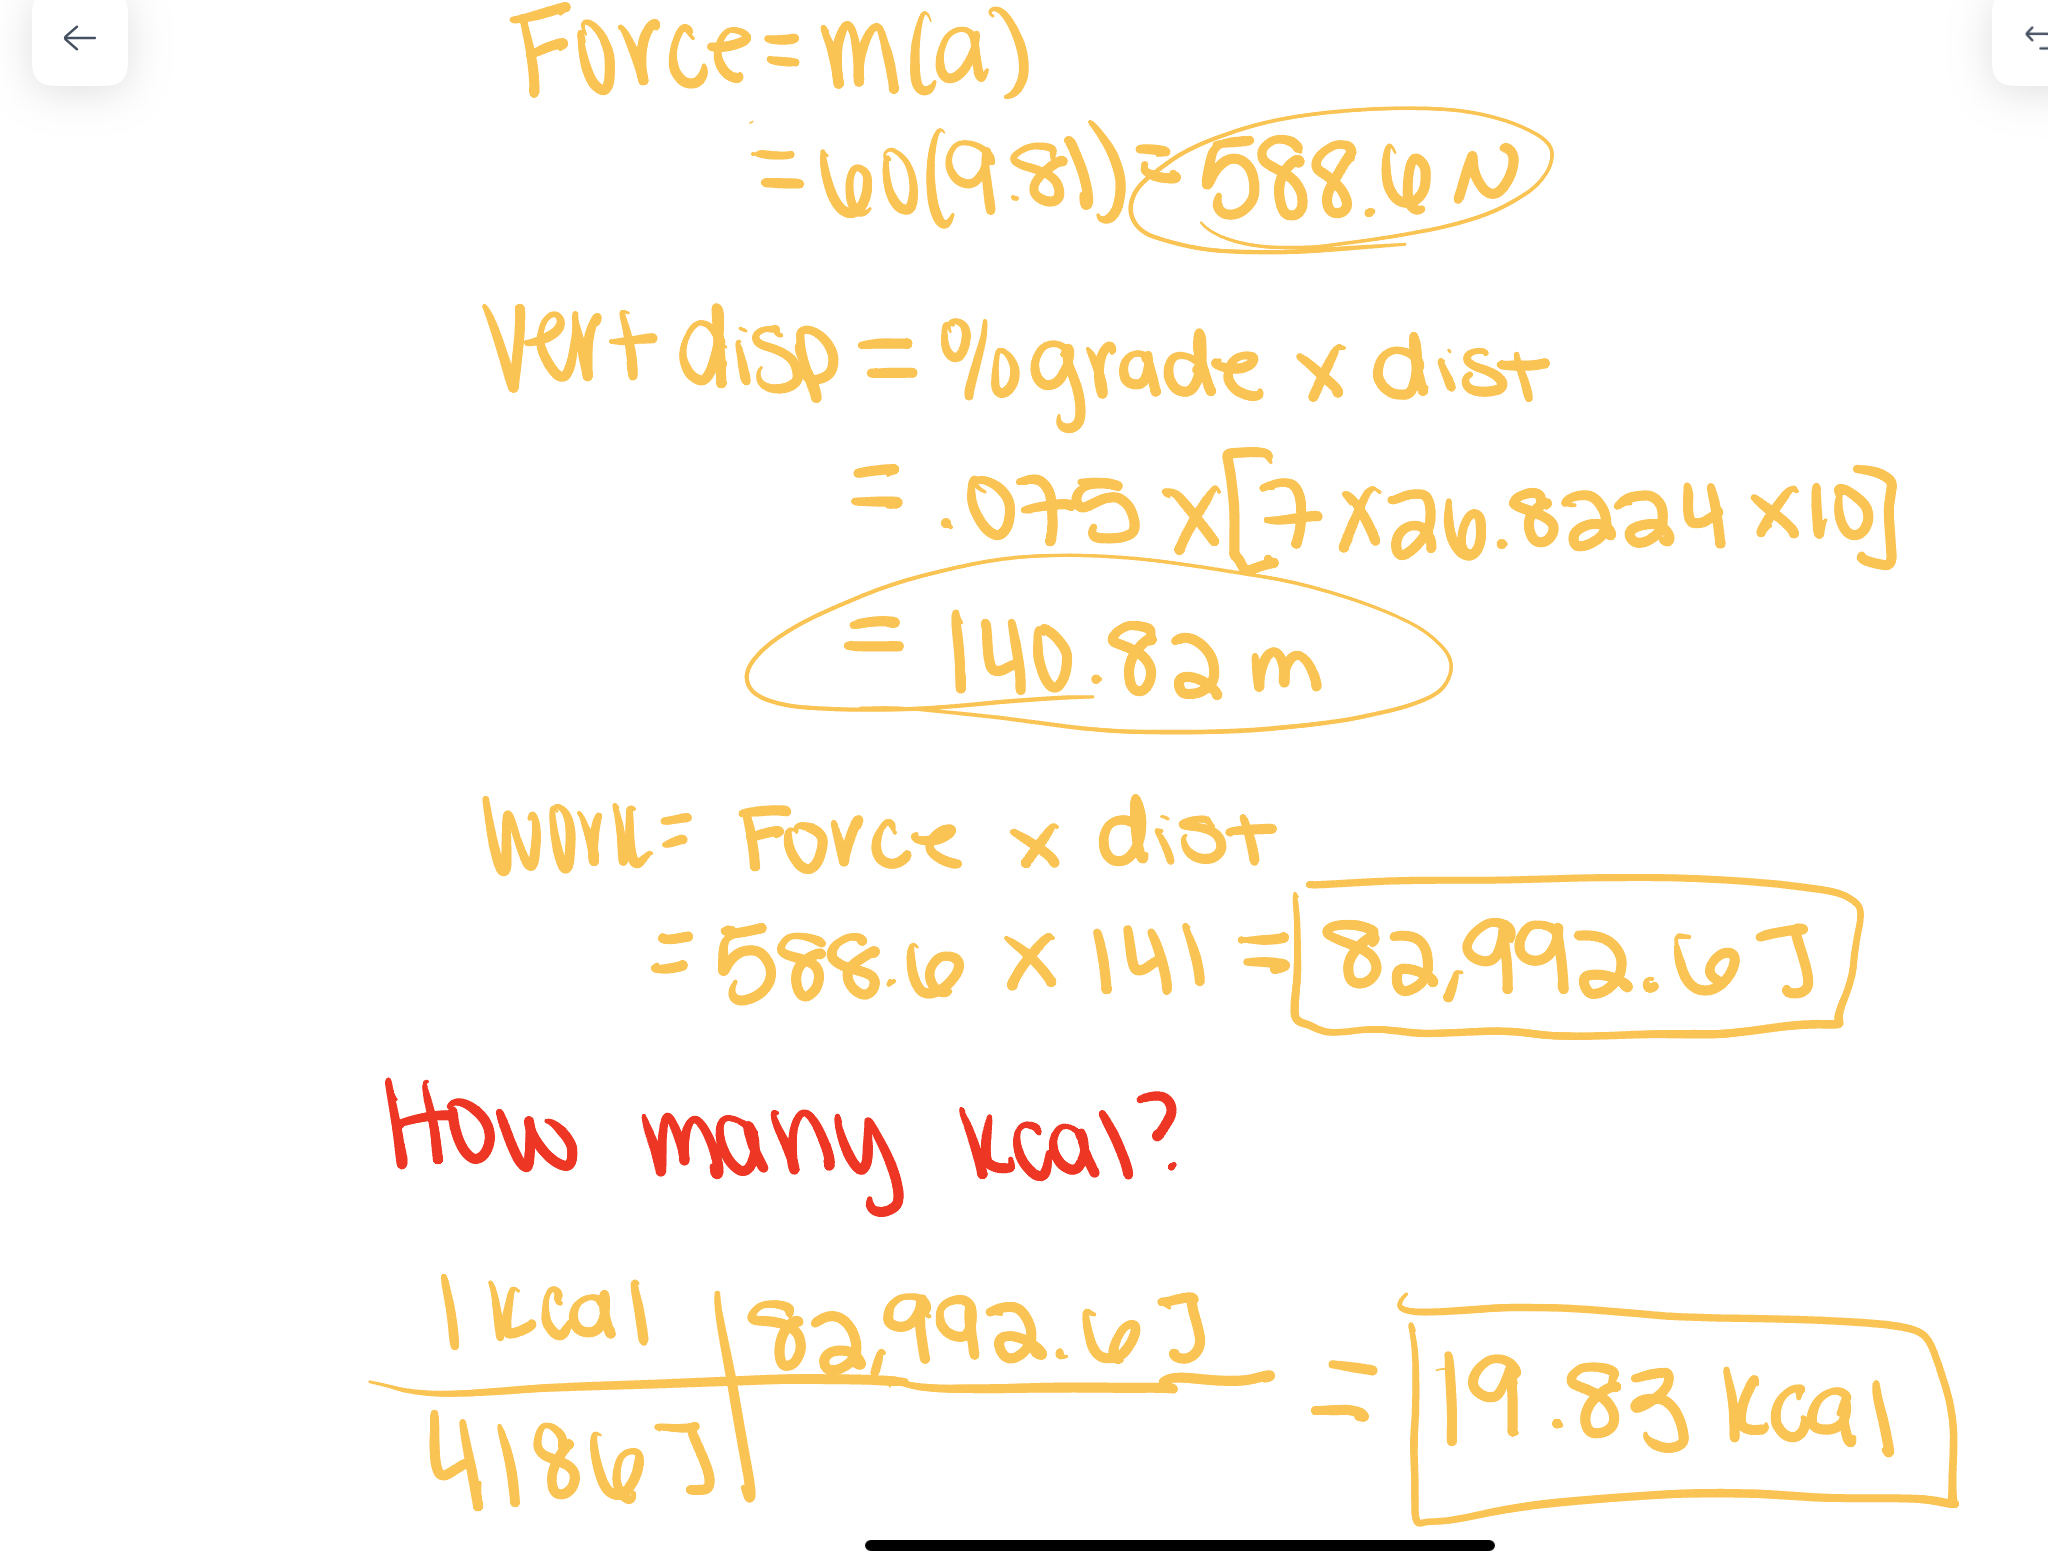 Force = m(a)
= 60(9.81) = 588.6 N
Vert disp = % grade x dist
= .075 x [7 x 26.8224 x 10]
= 140.82 m
Work = Force x dist
= 588.6 x 141 = 82,992.6 J
How many kcal?
1 kcal | 82,992.6 J
4186 J | = 19.83 kcal